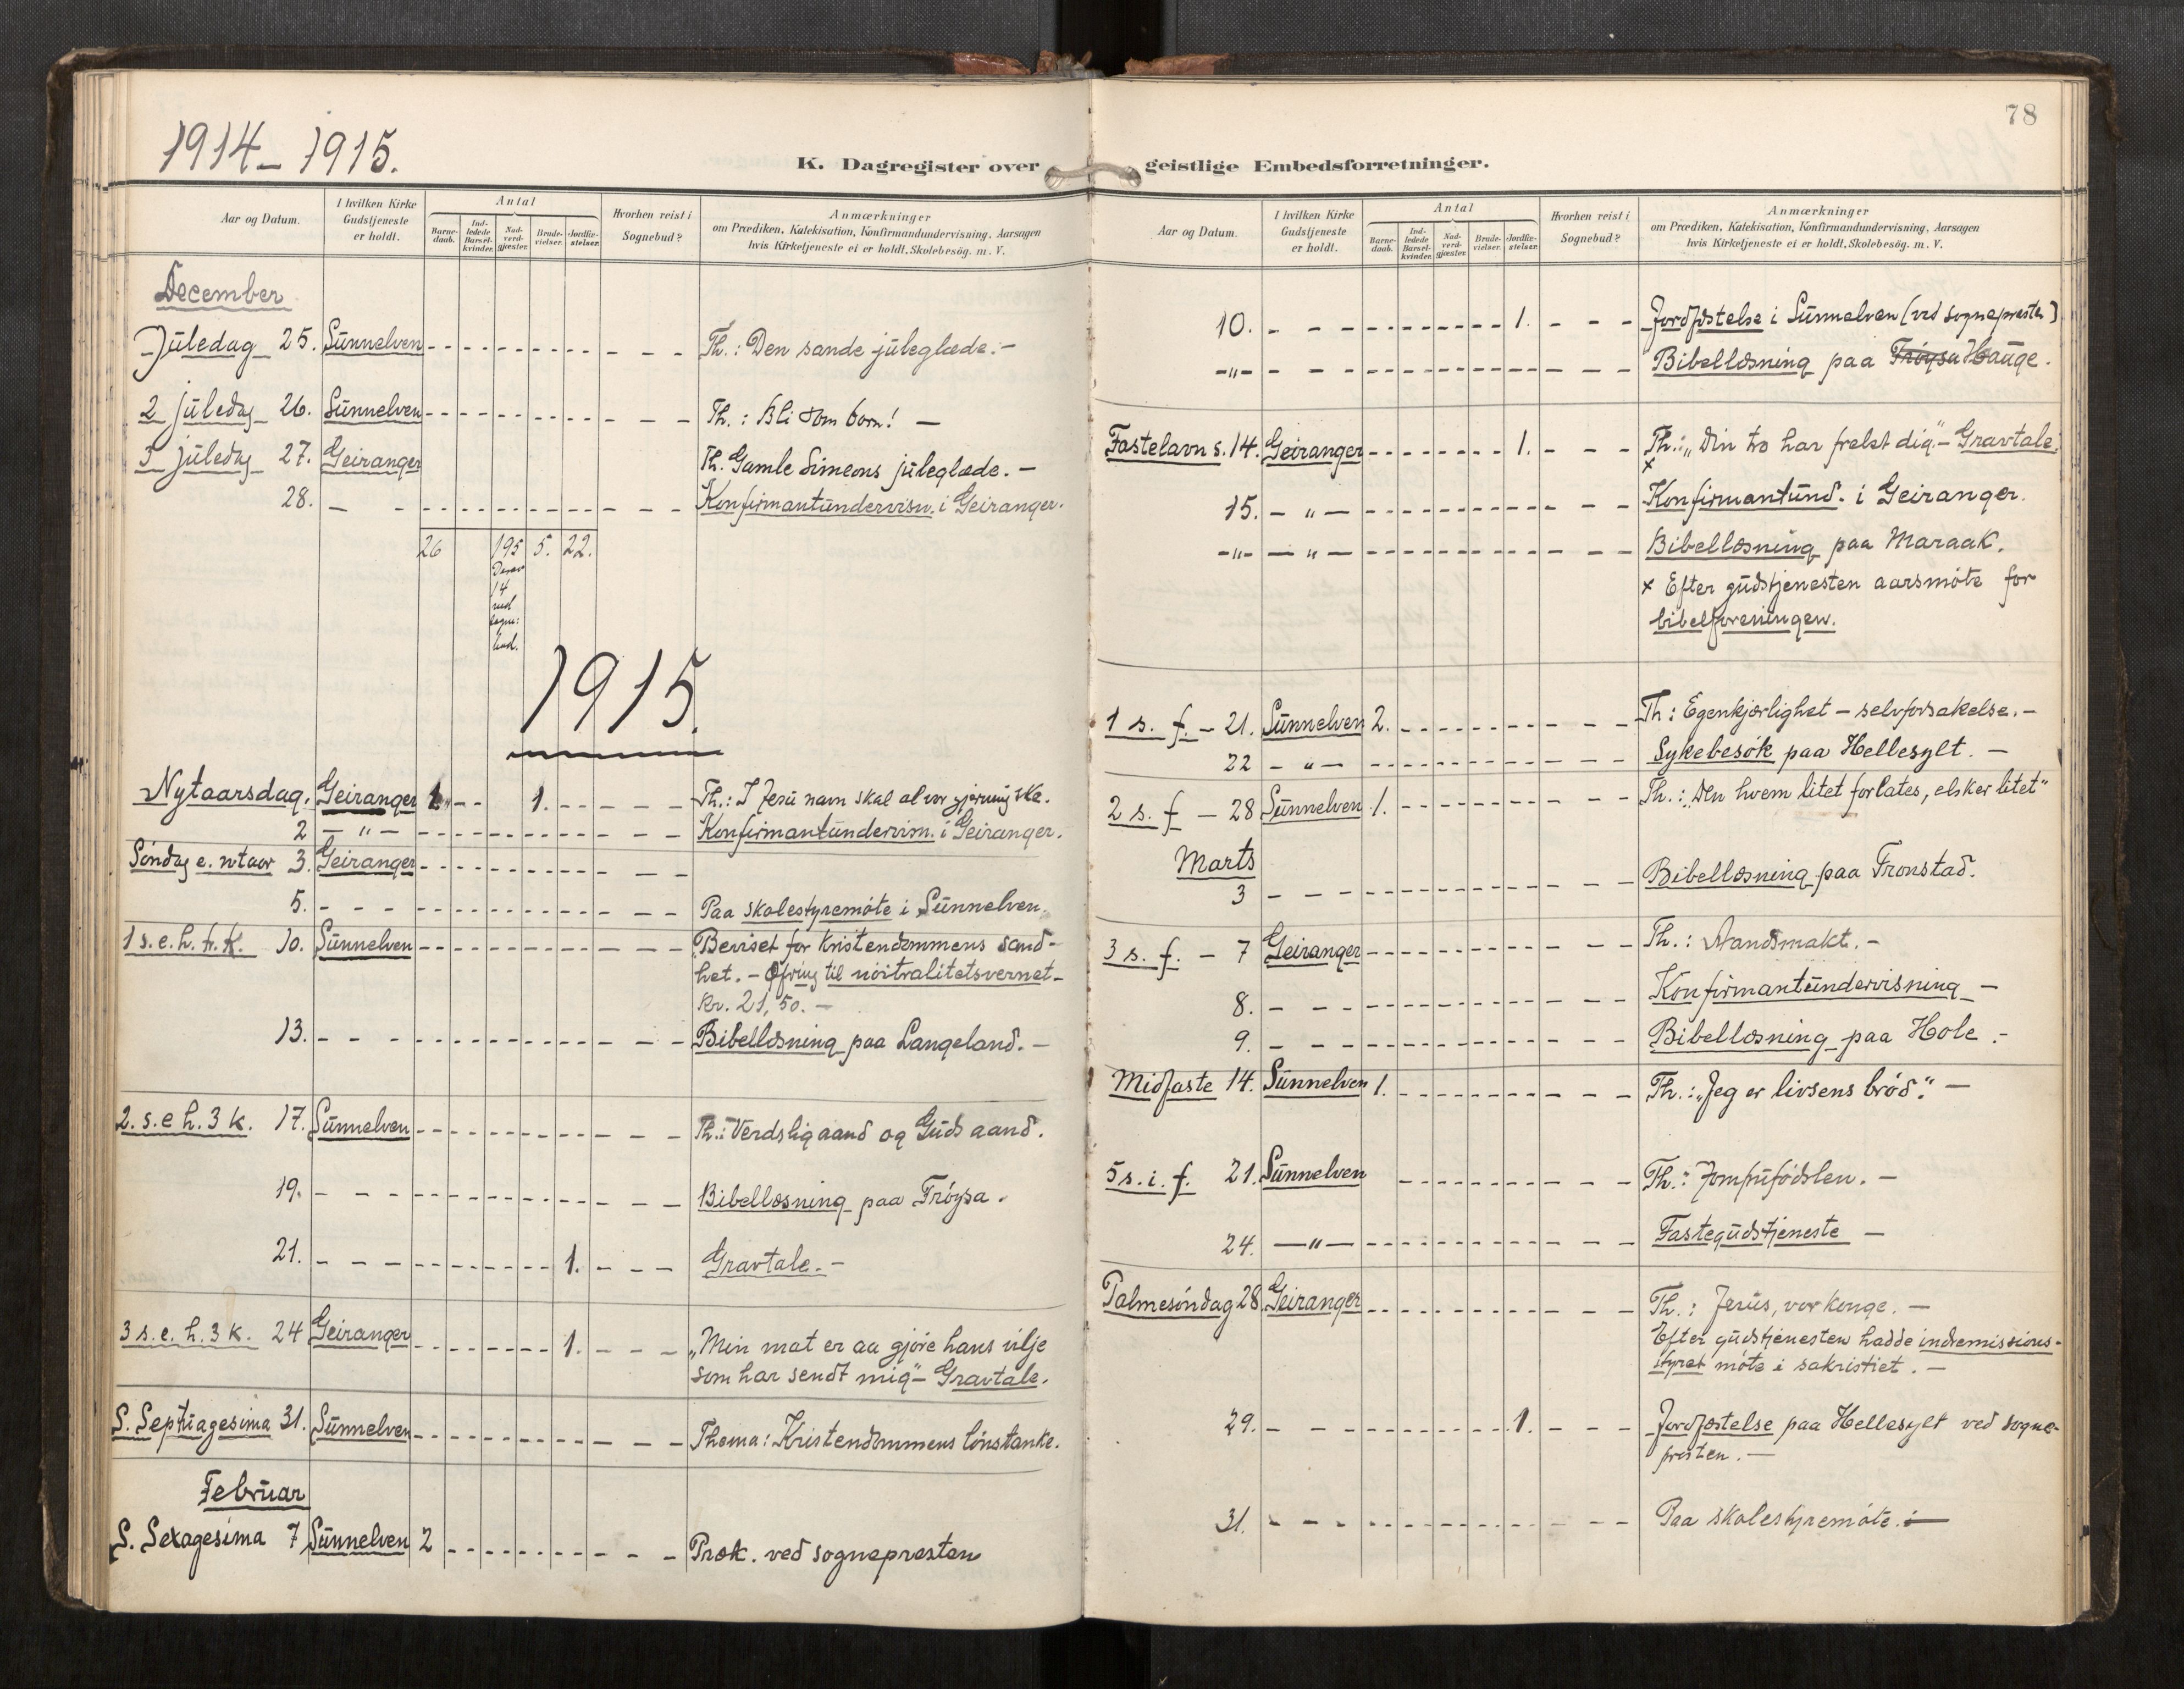 1914 – 1915.
K. Dagregister over
Aar og Datum.
I hvilken Kirke Gudstjeneste er holdt.
Antal
Barne-daab.
Ind-ledede Barsel-kvinder.
Nad-verd-gjæster.
Brude-vielser.
Jordfæ-stelser.
Hvorhen reist i Sognebud?
Anmærkninger
om Prædiken, Katekisation, Konfirmandundervisning, Aarsagen
hvis Kirketjeneste ei er holdt, Skolebesøg. m. V.
December
Juledag 25. Sunnelven Th.: Den sande juleglæde. –
2 juledag 26. Sunnelven Th.: Bli som born! –
3 juledag 27. Geiranger Th. Gamle Simeons juleglæde. –
28. – - Konfirmantundervisn. i Geiranger.
26 195 5. 22.
Derav
14
ved
sogne:
bud.
1915.
Nytaarsdag. Geiranger 1. Th.: I Jesu navn skal al vor gjerning ske.
2 – " – Konfirmantundervisn. i Geiranger.
Söndag e. nytaar 3. Geiranger
5. - - - Paa skolestyremöte i Sunnelven.
1 s. e. h. tr. k. 10. Sunnelven Beviset for kristendommens sand-
het. – Ofring til nöitralitetsvernet –
kr. 21,50. –
13. - - - Bibellæsning paa Langeland. –
2. s. e h. 3 k. 17. Sunnelven Th.: Verdslig aand og Guds aand.
19. - - - Bibellæsning paa Fröysa.
21. - - - 1. Gravtale. –
3 s. e. h. 3 k. 24 Geiranger 1. „Min mat er aa gjöre hans vilje
som har sendt mig" – Gravtale.
S. Septuagesima 31. Sunnelven Thema: Kristendommens lönstanke.
Februar
S. Sexagesima 7 Sunnelven 2 Præk. ved sognepresten
78
geistlige Embedsforretninger.
Aar og Datum.
I hvilken Kirke Gudstjeneste er holdt.
Antal
Barne-daab.
Ind-ledede Barsel-kvinder.
Nad-verd-gjæster.
Brude-vielser.
Jordfæ-stelser.
Hvorhen reist i Sognebud?
Anmærkninger
om Prædiken, Katekisation, Konfirmandundervisning, Aarsagen
hvis Kirketjeneste ei er holdt, Skolebesøg. m. V.
10. - - - 1. Jordfæstelse i Sunnelven (ved sognepresten)
-"- - - - Bibellæsning paa Fröysa Hauge.
Fastelavn s. 14. Geiranger 1. Th.: „Din tro har frelst dig." – Gravtale.
x
15. – " – Konfirmantund. i Geiranger.
-"- – " – Bibellæsning paa Maraak.
x Efter gudstjenesten aarsmöte for
bibelforeningen.
1 s. f. – 21. Sunnelven 2. Th: Egenkjærlighet – selvforsakelse. –
22 – " – Sykebesök paa Hellesylt. –
2 s. f – 28 Sunnelven 1. Th.: „Den hvem litet forlates, elsker litet"
Marts
3 - - - Bibellæsning paa Fronstad.
3 s. f. – 7 Geiranger Th.: Aandsmakt. –
8. - - - Konfirmantundervisning –
9. - - - Bibellæsning paa Hole. –
Midfaste 14. Sunnelven 1. Th.: „Jeg er livsens bröd." –
5 s. i. f. 21. Sunnelven Th.: Jomfrufödslen. –
24. – " – Fastegudstjeneste –
Palmesöndag 28. Geiranger Th.: Jesus, vor konge. –
Efter gudstjenesten hadde indremissions-
styret möte i sakristiet. –
29. - - - 1. Jordfæstelse paa Hellesylt ved sogne-
presten. –
31. - - - Paa skolestyremöte. i